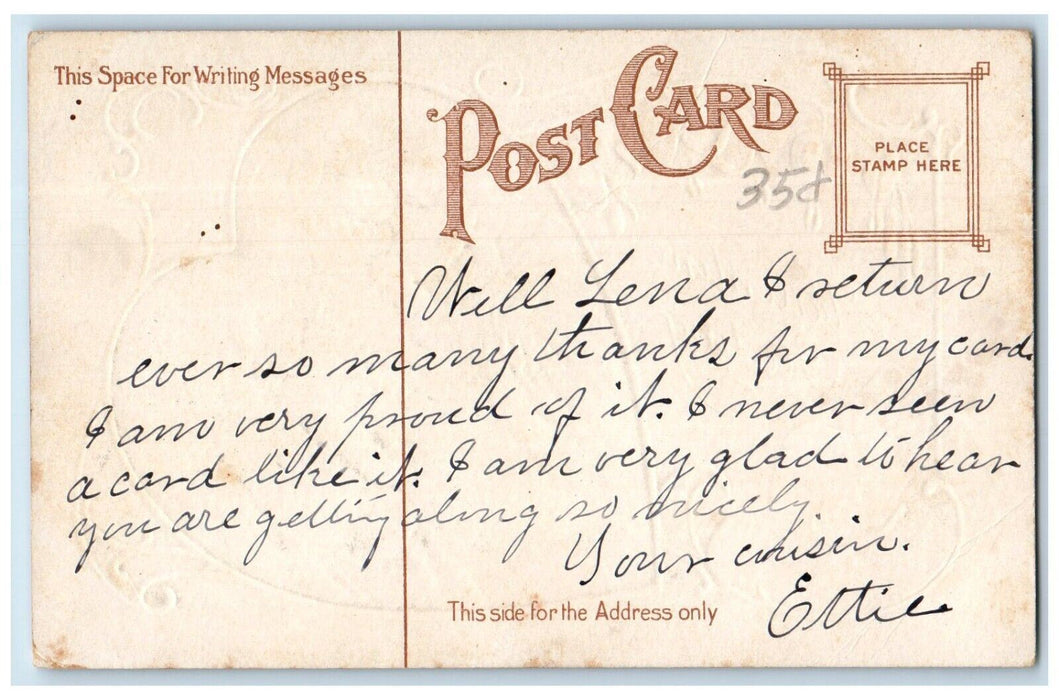 This Space For Writing Messages
POST CARD
PLACE
STAMP HERE
35¢
Well Lena I return
ever so many thanks for my card.
I am very proud of it. I never seen
a card like it. I am very glad to hear
you are getting along so nicely.
Your cuisin.
Ettie
This side for the Address only